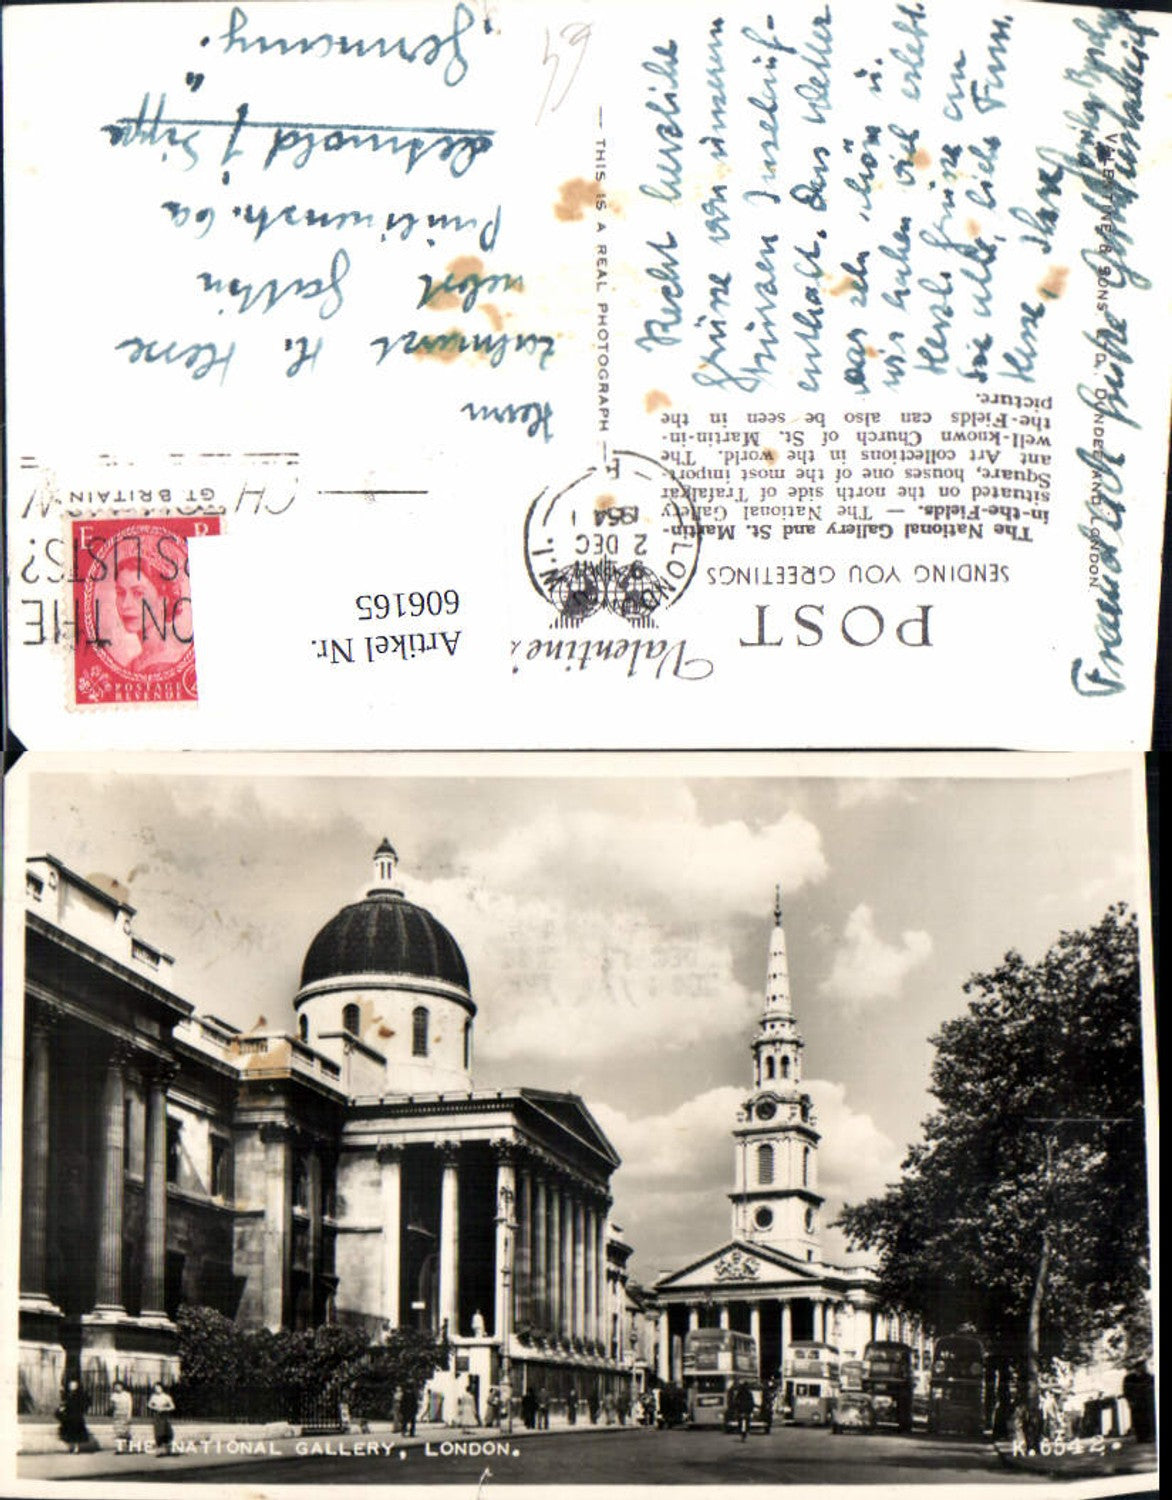 POST
SENDING YOU GREETINGS
Valentine's
Artikel Nr.
606165
The National Gallery and St. Martin-
in-the-Fields. — The National Gallery
situated on the north side of Trafalgar
Square, houses one of the most import-
ant Art collections in the world. The
well-known Church of St. Martin-in-
the-Fields can also be seen in the
picture.
LONDON N.W.1
2 DEC
1954
ON THE
GT BRITAIN
E R
POSTAGE
REVENUE
THIS IS A REAL PHOTOGRAPH
VALENTINE & SONS, LTD., DUNDEE AND LONDON
Herrn
Zahnarzt H. Hesse
nebst Gattin
Detmold / Lippe
Germany.
Recht herzliche
Grüsse von unserem
enthalt. Das Wetter
war sehr schön u.
wir haben viel erlebt.
Herzl. Grüsse an
Sie alle, liebe Fam.
Hesse,
64
THE NATIONAL GALLERY, LONDON.
K.6542.